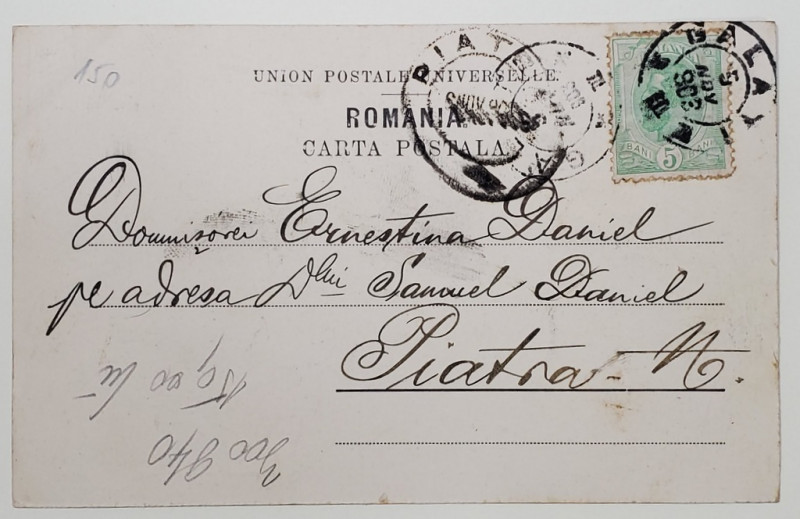 150
UNION POSTALE UNIVERSELLE.
ROMANIA.
CARTA POSTALA
PIAT
GALATI
5 NOV 902
BANI 5 BANI
Domnisorei Ernestina Daniel
pe adresa Dlui Samuel Daniel
Piatra-N.